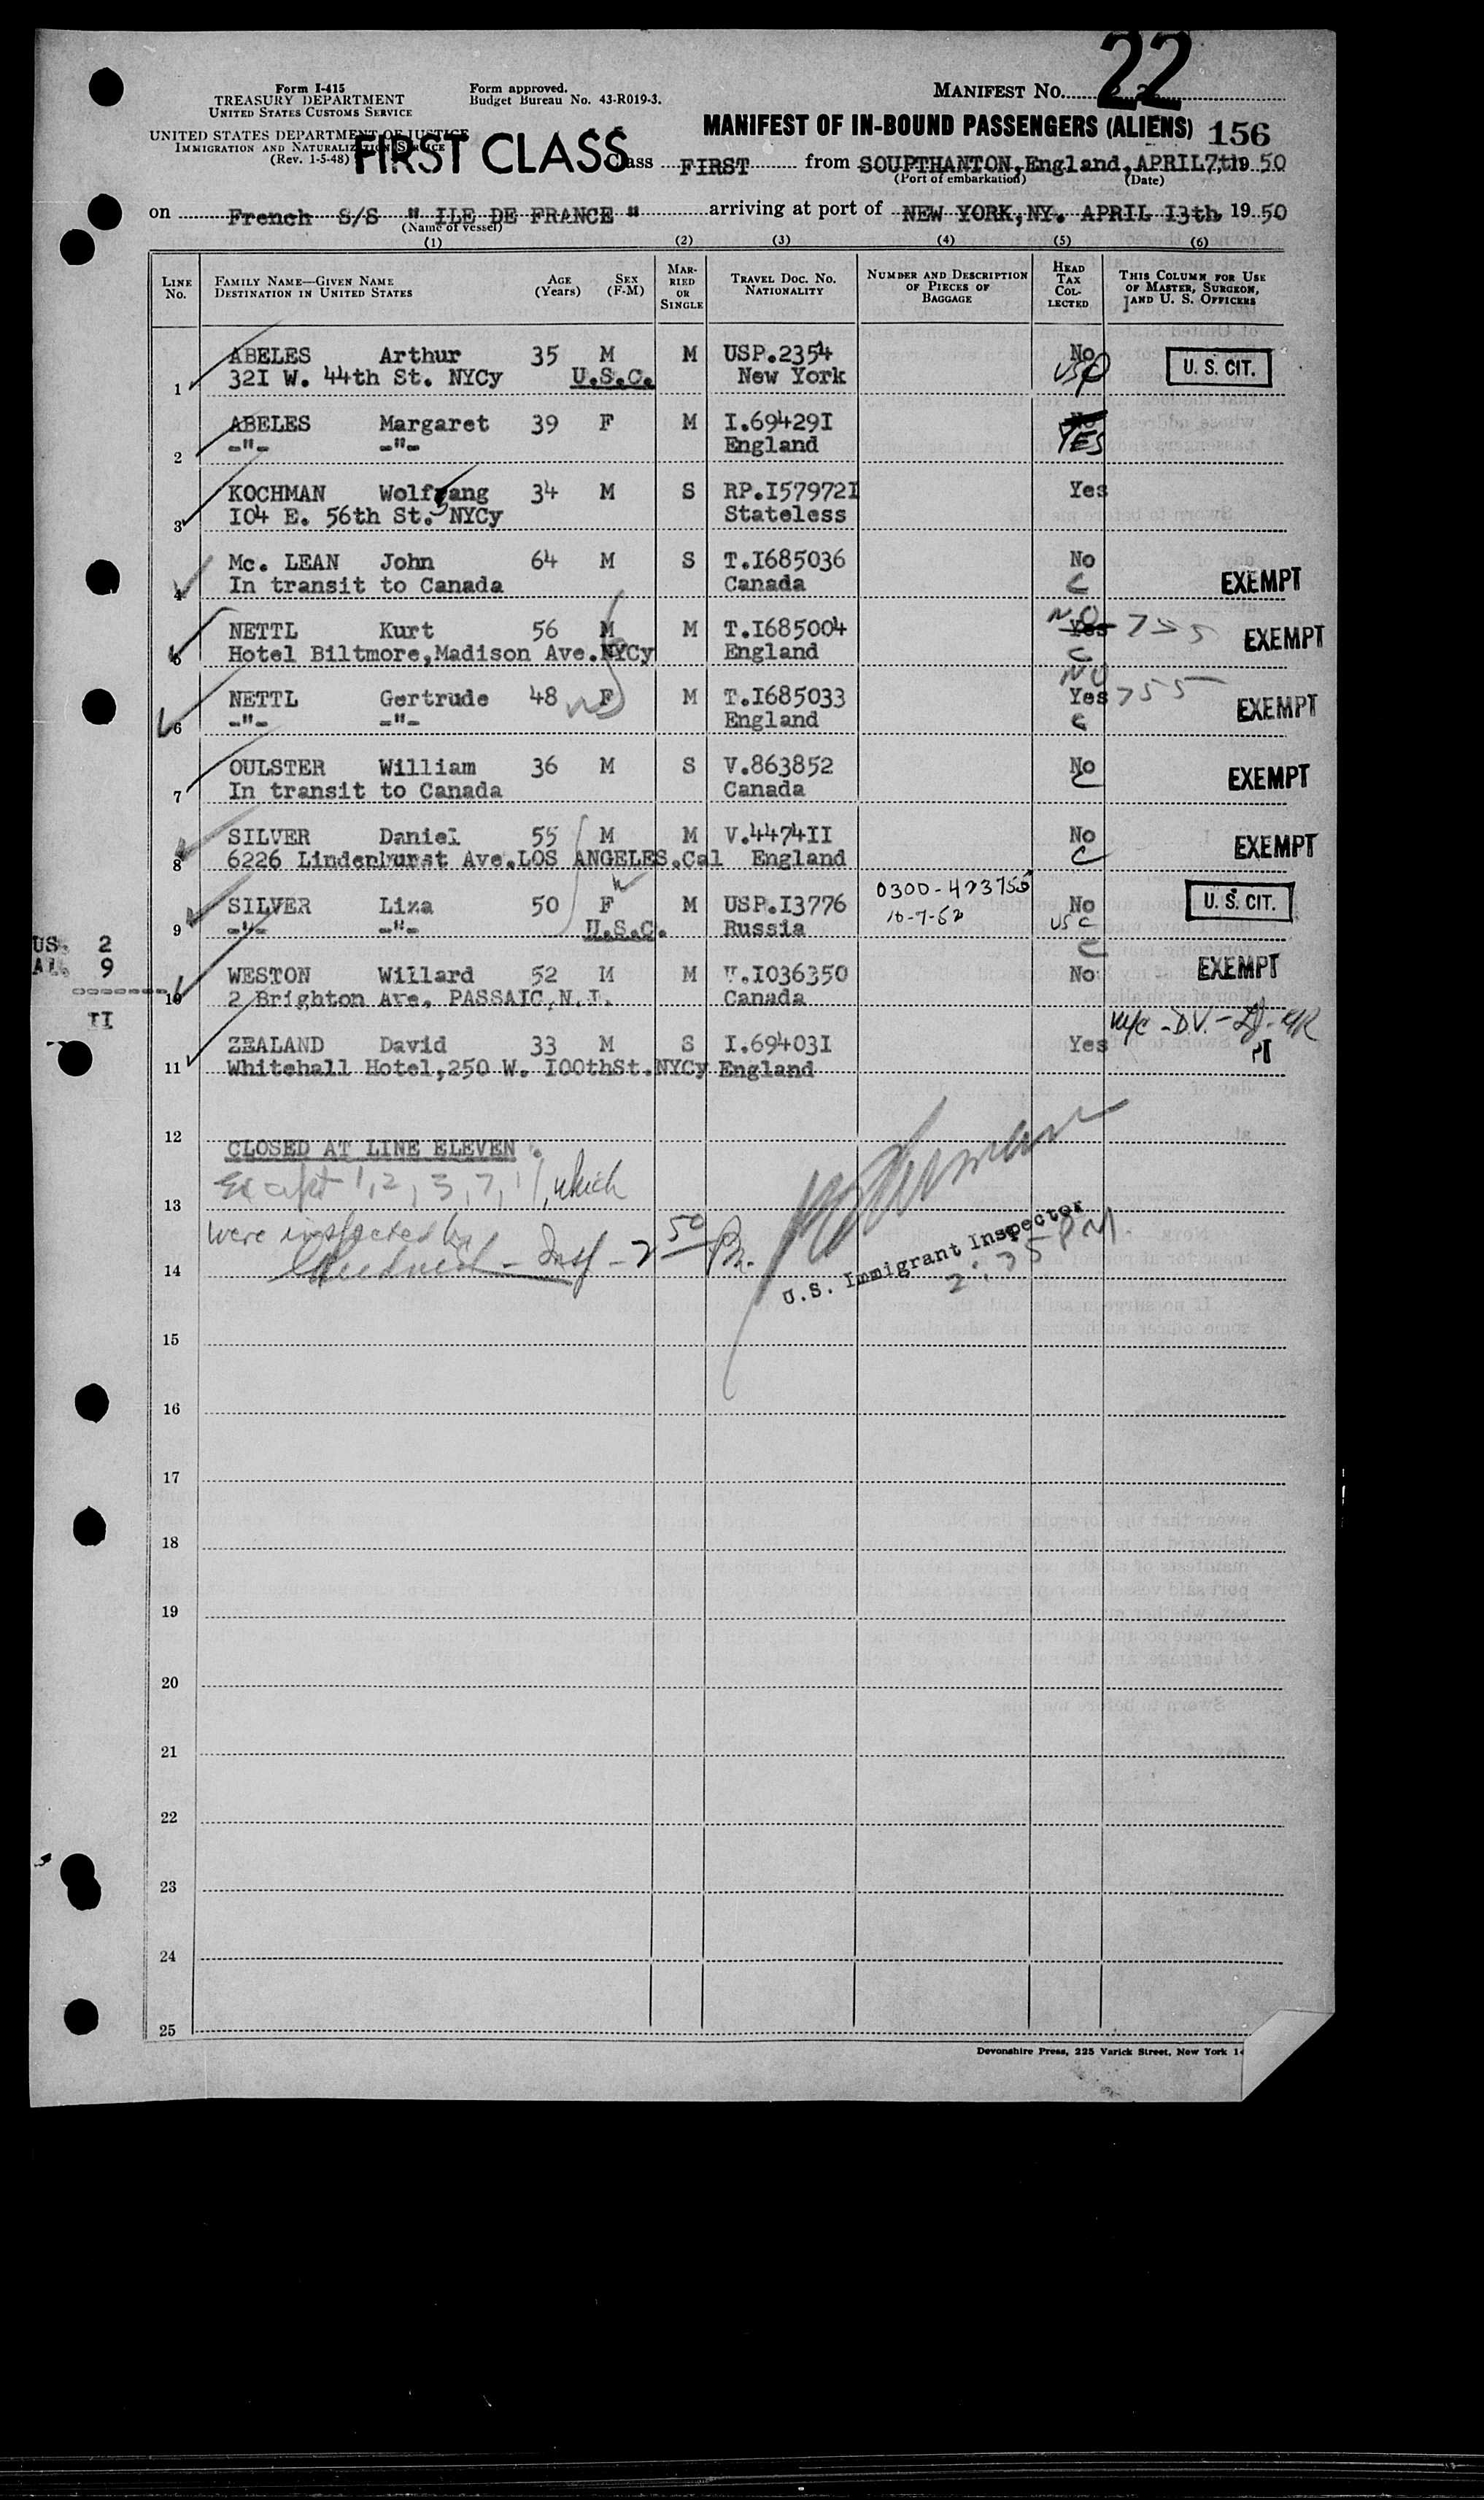 22
Form I-415
TREASURY DEPARTMENT
UNITED STATES CUSTOMS SERVICE
Form approved.
Budget Bureau No. 43-R019-3.
MANIFEST No. 22
UNITED STATES DEPARTMENT OF JUSTICE
IMMIGRATION AND NATURALIZATION SERVICE
(Rev. 1-5-48)
FIRST CLASS
MANIFEST OF IN-BOUND PASSENGERS (ALIENS) 156
Class FIRST from SOUPTHANTON,England,APRIL7,th19 50
(Port of embarkation) (Date)
on French S/S " ILE DE FRANCE " arriving at port of NEW YORK,NY. APRIL I3th 19 50
(Name of vessel)
(1) (2) (3) (4) (5) (6)
LINE No. FAMILY NAME—GIVEN NAME DESTINATION IN UNITED STATES AGE (Years) SEX (F-M) MARRIED OR SINGLE TRAVEL DOC. NO. NATIONALITY NUMBER AND DESCRIPTION OF PIECES OF BAGGAGE HEAD TAX COLLECTED THIS COLUMN FOR USE OF MASTER, SURGEON, AND U. S. OFFICERS
ABELES Arthur 35 M M USP.2354 No
1 32I W. 44th St. NYCy U.S.C. New York USC U. S. CIT.
ABELES Margaret 39 F M I.69429I No
2 -"- -"- England YES
KOCHMAN Wolfgang 34 M S RP.I57972I Yes
3 I04 E. 56th St. NYCy Stateless
Mc. LEAN John 64 M S T.I685036 No
4 In transit to Canada Canada C EXEMPT
NETTL Kurt 56 M M T.I685004 NO Yes 755 EXEMPT
5 Hotel Biltmore,Madison Ave.NYCy England C
NETTL Gertrude 48 F M T.I685033 NO Yes 755 EXEMPT
6 -"- -"- England C
OULSTER William 36 M S V.863852 No EXEMPT
7 In transit to Canada Canada C
SILVER Daniel 55 M M V.4474II No EXEMPT
8 6226 Lindenhurst Ave.LOS ANGELES.Cal England C
SILVER Liza 50 F M USP.I3776 0300-423755 No U. S. CIT.
9 -"- -"- U.S.C. Russia 10-7-52 USC
US. 2
AL. 9
II
WESTON Willard 52 M M V.I036350 C No EXEMPT
10 2 Brighton Ave, PASSAIC,N.J. Canada
ZEALAND David 33 M S I.69403I Yes
11 Whitehall Hotel,250 W. I00thSt.NYCy England
12 CLOSED AT LINE ELEVEN .
Except 1, 2, 3, 7, 11, which
13
were inspected by
Insp - 2 50 Pm.
14
U.S. Immigrant Inspector
2:35 PM
15
16
17
18
19
20
21
22
23
24
25
Devonshire Press, 225 Varick Street, New York 14